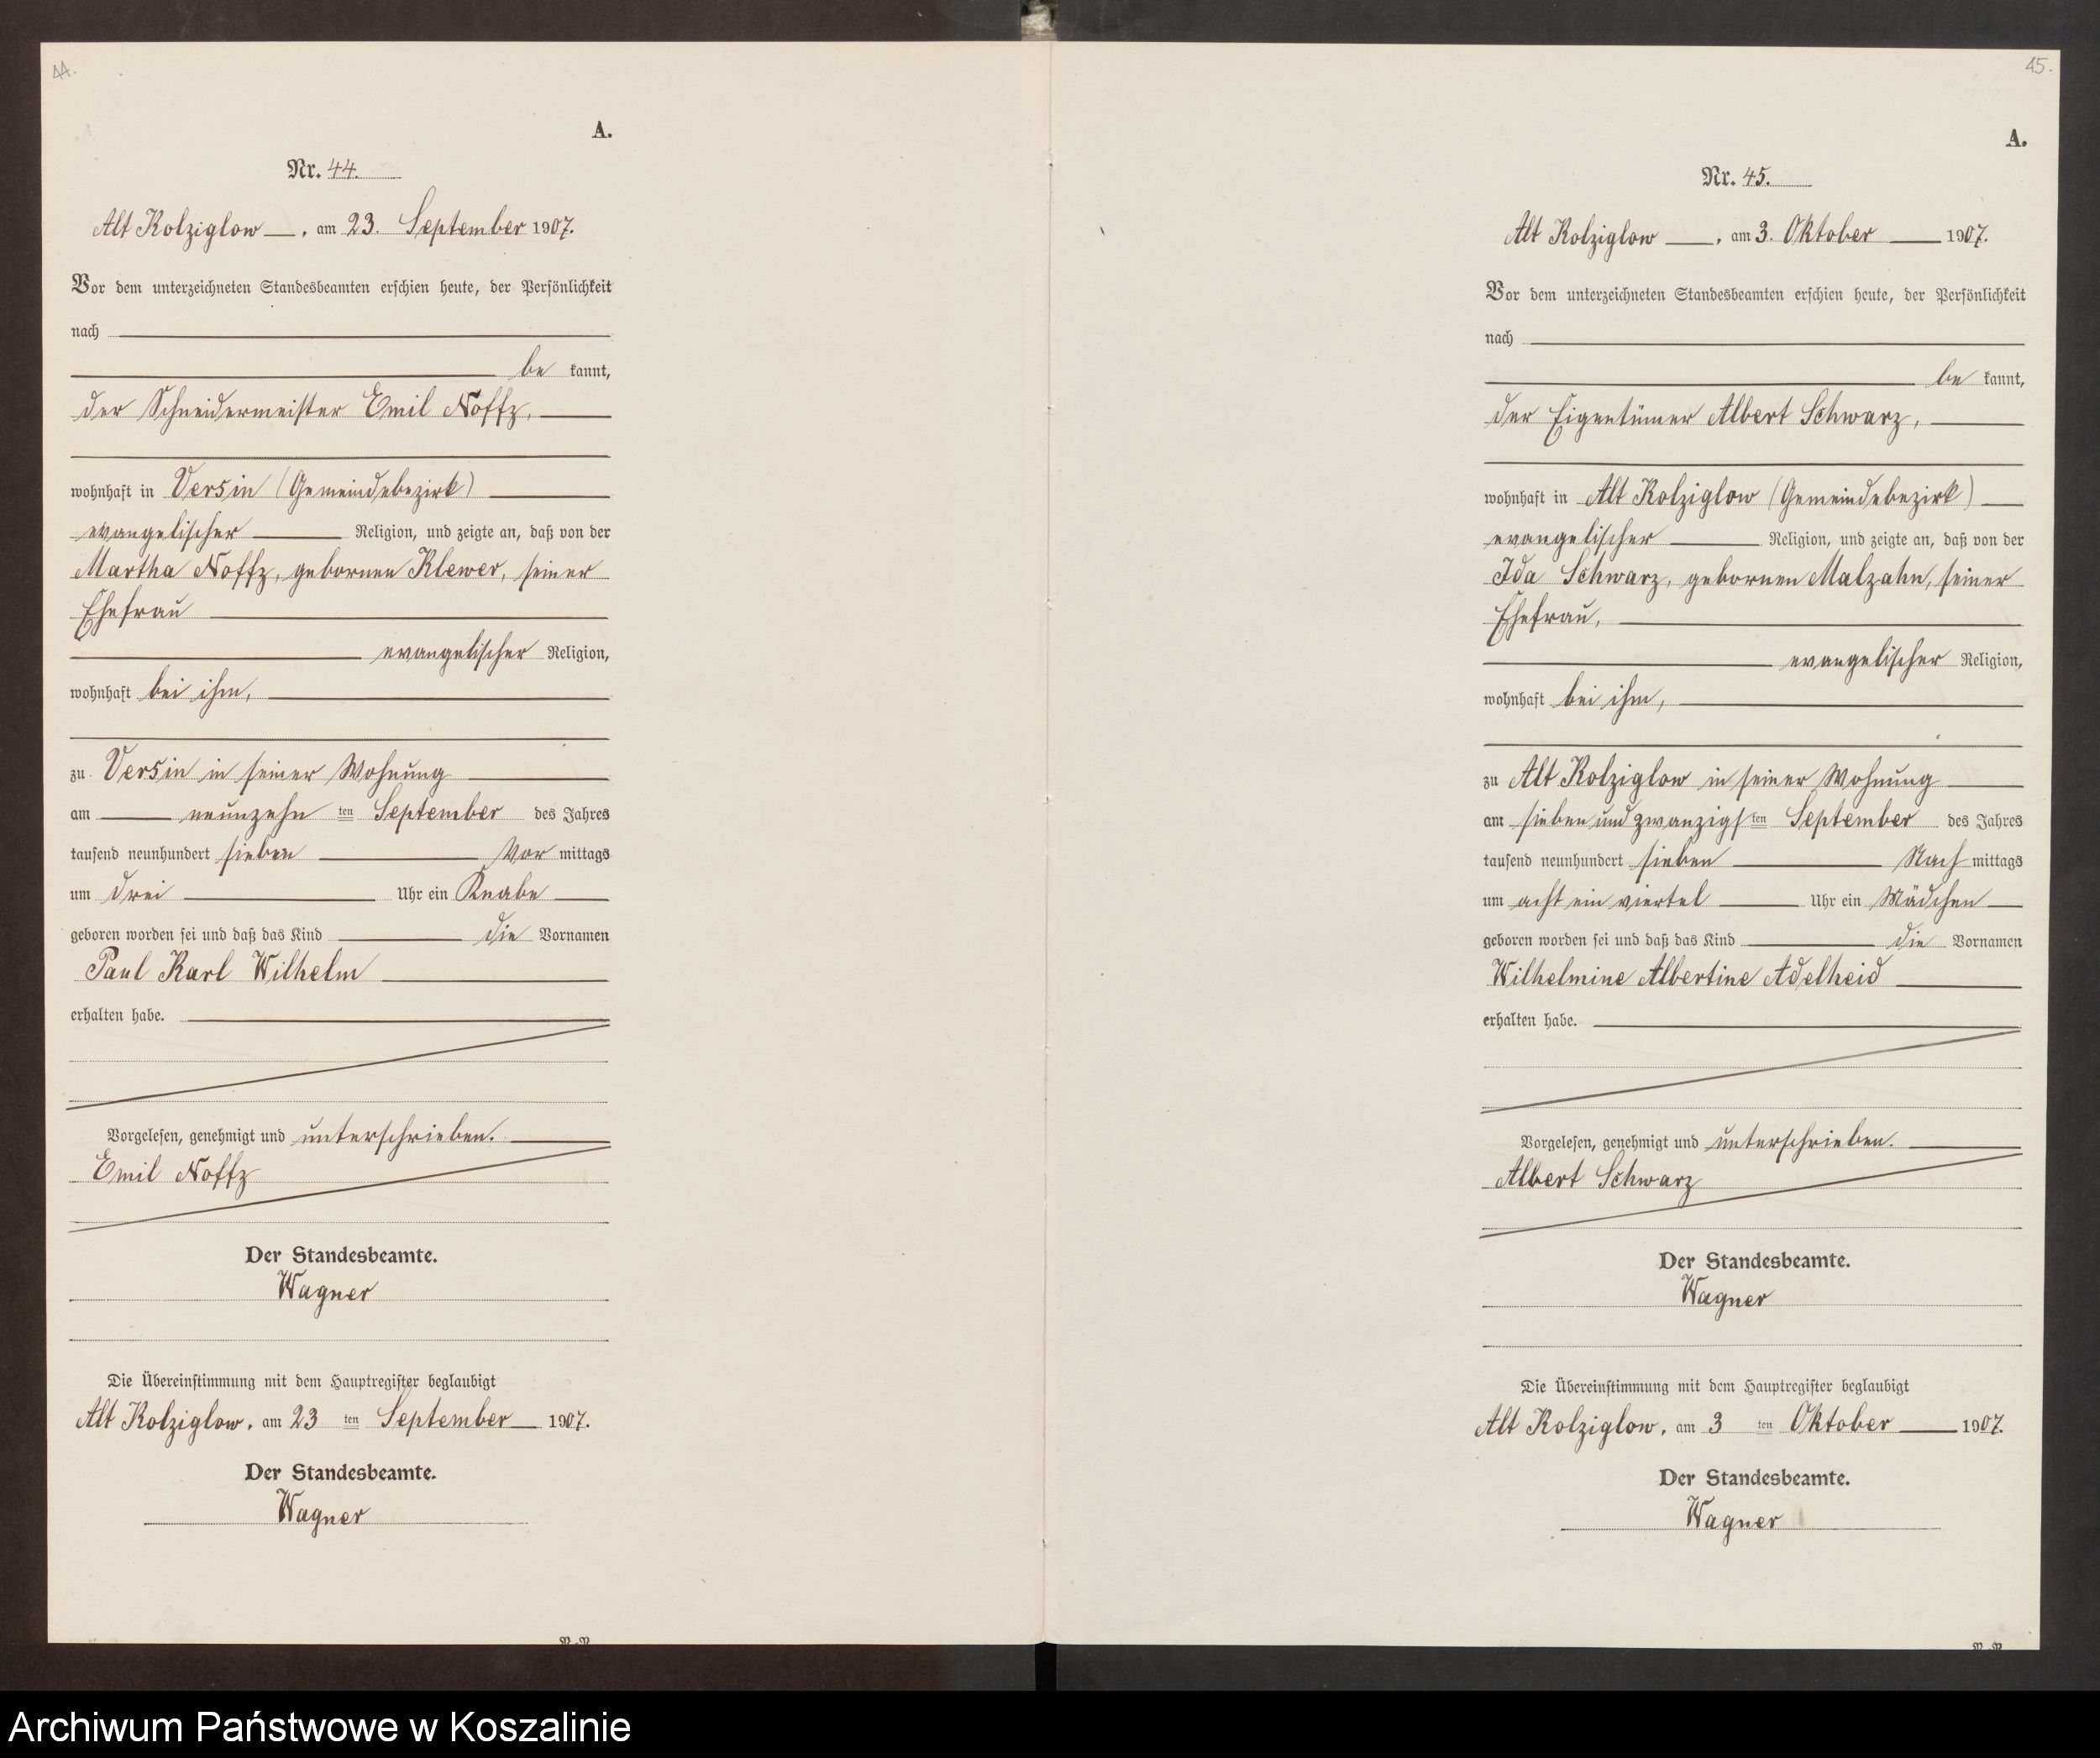 44.
A.
Nr. 44.
Alt Kolziglow, am 23. September 1907.
Vor dem unterzeichneten Standesbeamten erschien heute, der Persönlichkeit
nach
be kannt,
der Schneidermeister Emil Noffz,
wohnhaft in Versin (Gemeindebezirk)
evangelischer Religion, und zeigte an, daß von der
Martha Noffz, gebornen Klewer, seiner
Ehefrau
evangelischer Religion,
wohnhaft bei ihm,
zu Versin in seiner Wohnung
am neunzehn ten September des Jahres
tausend neunhundert sieben Vor mittags
um drei Uhr ein Knabe
geboren worden sei und daß das Kind die Vornamen
Paul Karl Wilhelm
erhalten habe.
Vorgelesen, genehmigt und unterschrieben.
Emil Noffz
Der Standesbeamte.
Wagner
Die Übereinstimmung mit dem Hauptregister beglaubigt
Alt Kolziglow, am 23 ten September 1907.
Der Standesbeamte.
Wagner
45.
A.
Nr. 45.
Alt Kolziglow, am 3. Oktober 1907.
Vor dem unterzeichneten Standesbeamten erschien heute, der Persönlichkeit
nach
be kannt,
der Eigentümer Albert Schwarz,
wohnhaft in Alt Kolziglow (Gemeindebezirk)
evangelischer Religion, und zeigte an, daß von der
Ida Schwarz, gebornen Malzahn, seiner
Ehefrau,
evangelischer Religion,
wohnhaft bei ihm,
zu Alt Kolziglow in seiner Wohnung
am sieben und zwanzigs ten September des Jahres
tausend neunhundert sieben Nach mittags
um acht ein viertel Uhr ein Mädchen
geboren worden sei und daß das Kind die Vornamen
Wilhelmine Albertine Adelheid
erhalten habe.
Vorgelesen, genehmigt und unterschrieben.
Albert Schwarz
Der Standesbeamte.
Wagner
Die Übereinstimmung mit dem Hauptregister beglaubigt
Alt Kolziglow, am 3 ten Oktober 1907.
Der Standesbeamte.
Wagner
Archiwum Państwowe w Koszalinie